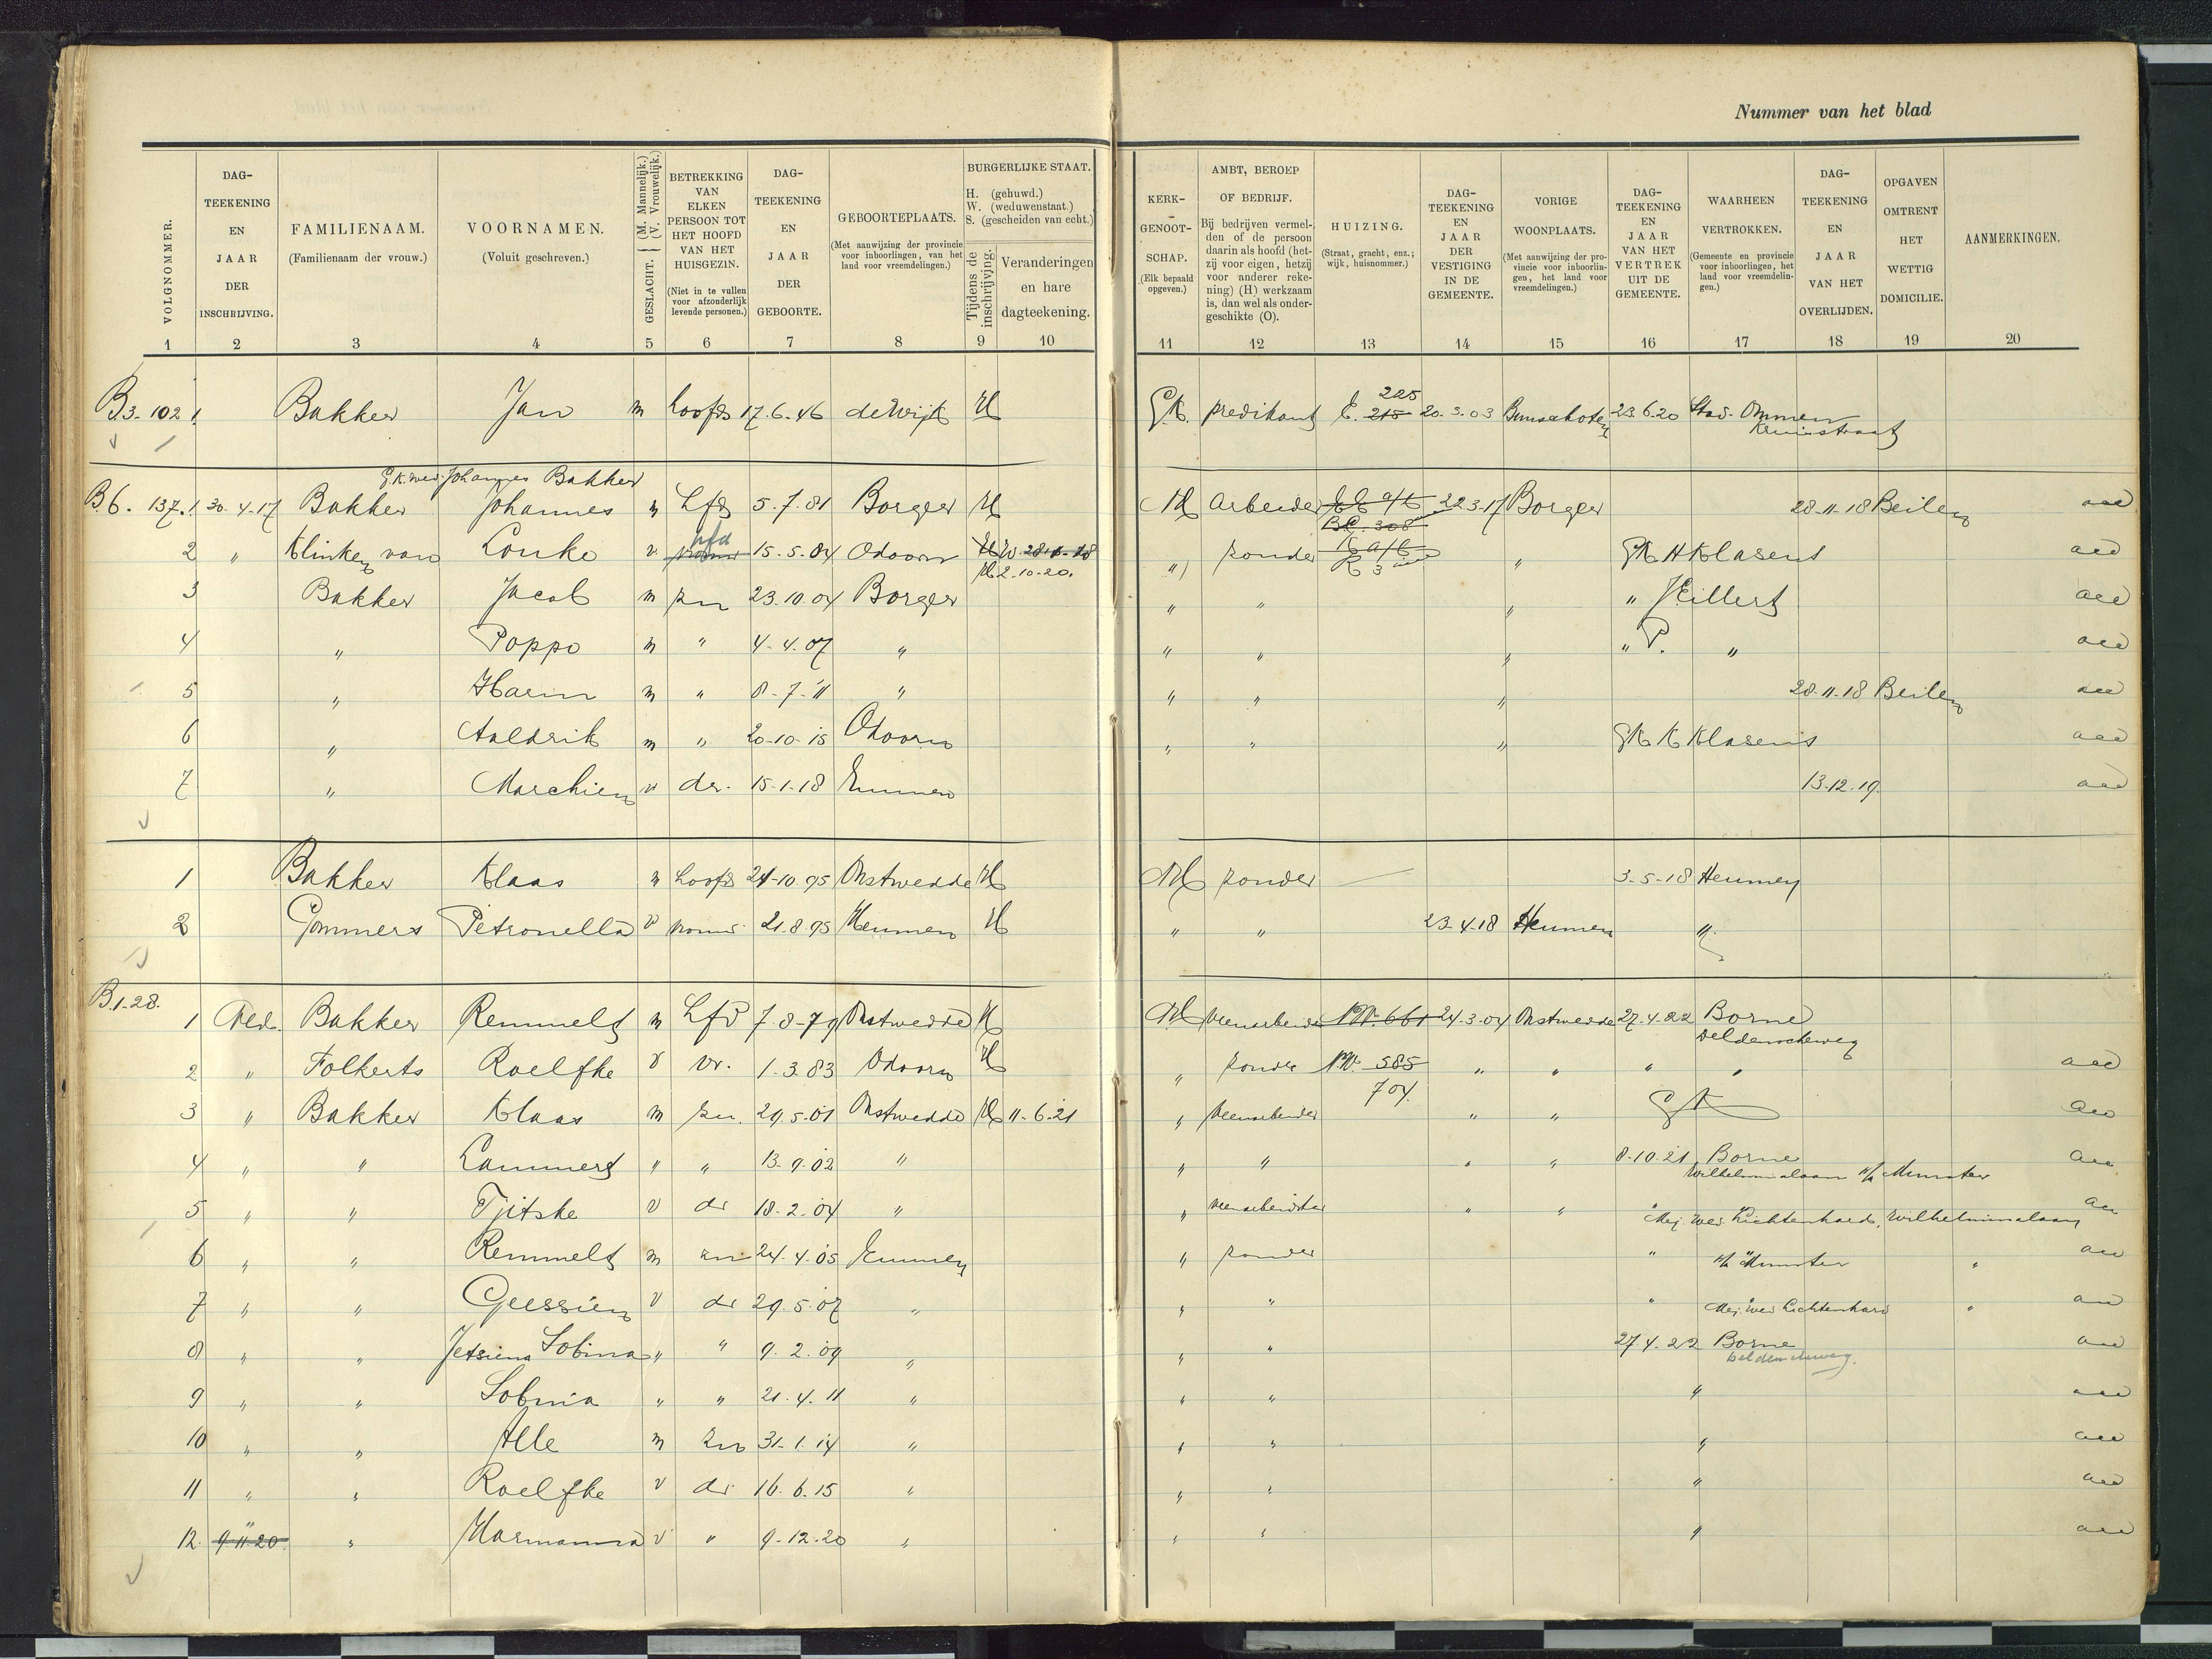 Nummer van het blad
VOLGNOMMER. 1
DAG-TEEKENING EN JAAR DER INSCHRIJVING. 2
FAMILIENAAM. (Familienaam der vrouw.) 3
VOORNAMEN. (Voluit geschreven.) 4
GESLACHT. (M. Mannelijk.) (V. Vrouwelijk.) 5
BETREKKING VAN ELKEN PERSOON TOT HET HOOFD VAN HET HUISGEZIN. (Niet in te vullen voor afzonderlijk levende personen.) 6
DAG-TEEKENING EN JAAR DER GEBOORTE. 7
GEBOORTEPLAATS. (Met aanwijzing der provincie voor inboorlingen, van het land voor vreemdelingen.) 8
BURGERLIJKE STAAT. H. (gehuwd.) W. (weduwenstaat.) S. (gescheiden van echt.)
Tijdens de inschrijving. 9
Veranderingen en hare dagteekening. 10
KERK-GENOOT-SCHAP. (Elk bepaald opgeven.) 11
AMBT, BEROEP OF BEDRIJF. Bij bedrijven vermelden of de persoon daarin als hoofd (hetzij voor eigen, hetzij voor anderer rekening) (H) werkzaam is, dan wel als ondergeschikte (O). 12
HUIZING. (Straat, gracht, enz.; wijk, huisnommer.) 13
DAG-TEEKENING EN JAAR DER VESTIGING IN DE GEMEENTE. 14
VORIGE WOONPLAATS. (Met aanwijzing der provincie voor inboorlingen, het land voor vreemdelingen.) 15
DAG-TEEKENING EN JAAR VAN HET VERTREK UIT DE GEMEENTE. 16
WAARHEEN VERTROKKEN. (Gemeente en provincie voor inboorlingen, het land voor vreemdelingen.) 17
DAG-TEEKENING EN JAAR VAN HET OVERLIJDEN. 18
OPGAVEN OMTRENT HET WETTIG DOMICILIE. 19
AANMERKINGEN. 20
B.3-102 1 Bakker Jan m hoofd 17.6.46 de Wijk H G.K. predikant E. 215 225 20.3.03 Bunschoten 23.6.20 Stad-Ommen
Kruisstraat
G.K. wed. Johannes Bakker
B.6. 137. 1 30.4.17 Bakker Johannes m Hfd 5.7.81 Borger H NH Arbeider 22.3.17 Borger 28-11-18 Beilen aed
BC. 308
2 " Klinken van Louke v vrouw hfd 15-5-84 Odoorn H W. 28-11-18 " zonder " GK H Klasens aed
H 2-10-20.
3 Bakker Jacob m zn 23.10.04 Borger " " " " J Eillert aed
4 " Poppo m " 4-4.07 " " " " " P. " aed
5 " Harm m " 8-7-11 " " " " 28.11-18 Beilen aed
6 " Aaldrik m " 20-10-15 Odoorn " " " GK K Klasens aed
7 " Marchien v dr. 15-1-18 Emmen 13-12.19. aed
1 Bakker Klaas m hoofd 24-10-95 Onstwedde H NH zonder — 3-5-18 Heumen
2 Gommers Petronella v vrouw 21.8.95 Heumen H " " 23-4-18 Heumen "
B.1-28.
1 Bakker Remmelt m Hfd 7-8-79 Onstwedde H NH veenarbeider NW. 661 24.3.04 Onstwedde 27.4.22 Borne
Deldenscheweg
2 " Folkerts Roelfke v vr. 1.3.83 Odoorn H " zonder NW. 585 " " " " aed
704
3 " Bakker Klaas m zn. 29.5.01 Onstwedde H 11-6-21 " veenarbeider " " GK aed
4 " " Lammert " " 13-9.02 " " " " " 8-10.21 Borne aed
Wilhelminalaan h/k Munster
5 " " Tjitske v dr 18-2.04 " " veenarbeidster " " " aed
Mej. Wed. Lichtenhard, Wilhelminalaan
6 " " Remmelt m zn 24.4.05 Emmen " zonder " h/k Munster " aed
7 " " Geessien v dr 29.5.07 " " " " Mej. Wed Lichtenhard " aed
8 " " Jetsiena Sobina " " 9.2.09 " " " 27.4.22 Borne aed
Deldenscheweg.
9 " " Sobina " " 21.4.11 " " " " aed
10 " " Alle m zn 31.1.14 " " " " aed
11 " " Roelfke v dr 16.6.15 " " " " aed
12. 9.11.20 " Harmanna v " 9-12-20 " " " " aed